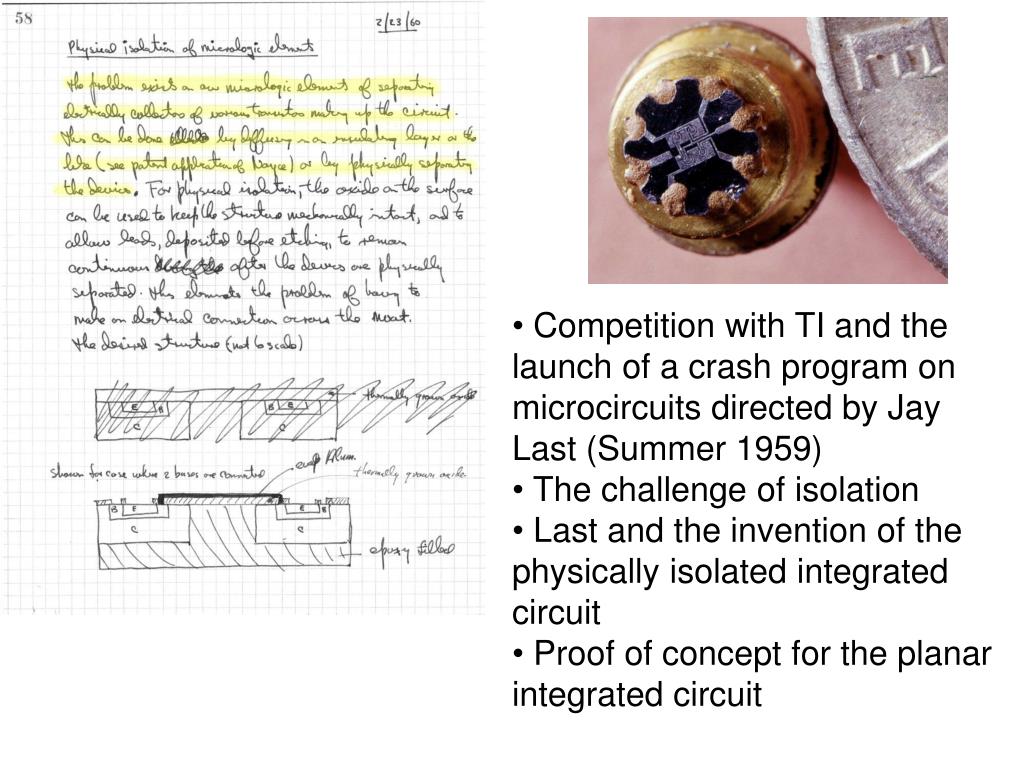 58
2/23/60
Physical isolation of micrologic elements
The problem exists in our micrologic elements of separating
electrically collectors of various transistors making up the circuit.
This can be done by diffusing in an insulating layer or the
like (see patent application of Noyce) or by physically separating
the devices. For physical isolation, the oxide on the surface
can be used to keep the structure mechanically intact, and to
allow leads, deposited before etching, to remain
continuous after the devices are physically
separated. This eliminates the problem of having to
make an electrical connection across the moat.
The desired structure (not to scale)
thermally grown oxide
E B B E
C C
evap Alum.
shown for case where 2 bases are connected
thermally grown oxide
B E E B
C C
epoxy filled
• Competition with TI and the
launch of a crash program on
microcircuits directed by Jay
Last (Summer 1959)
• The challenge of isolation
• Last and the invention of the
physically isolated integrated
circuit
• Proof of concept for the planar
integrated circuit